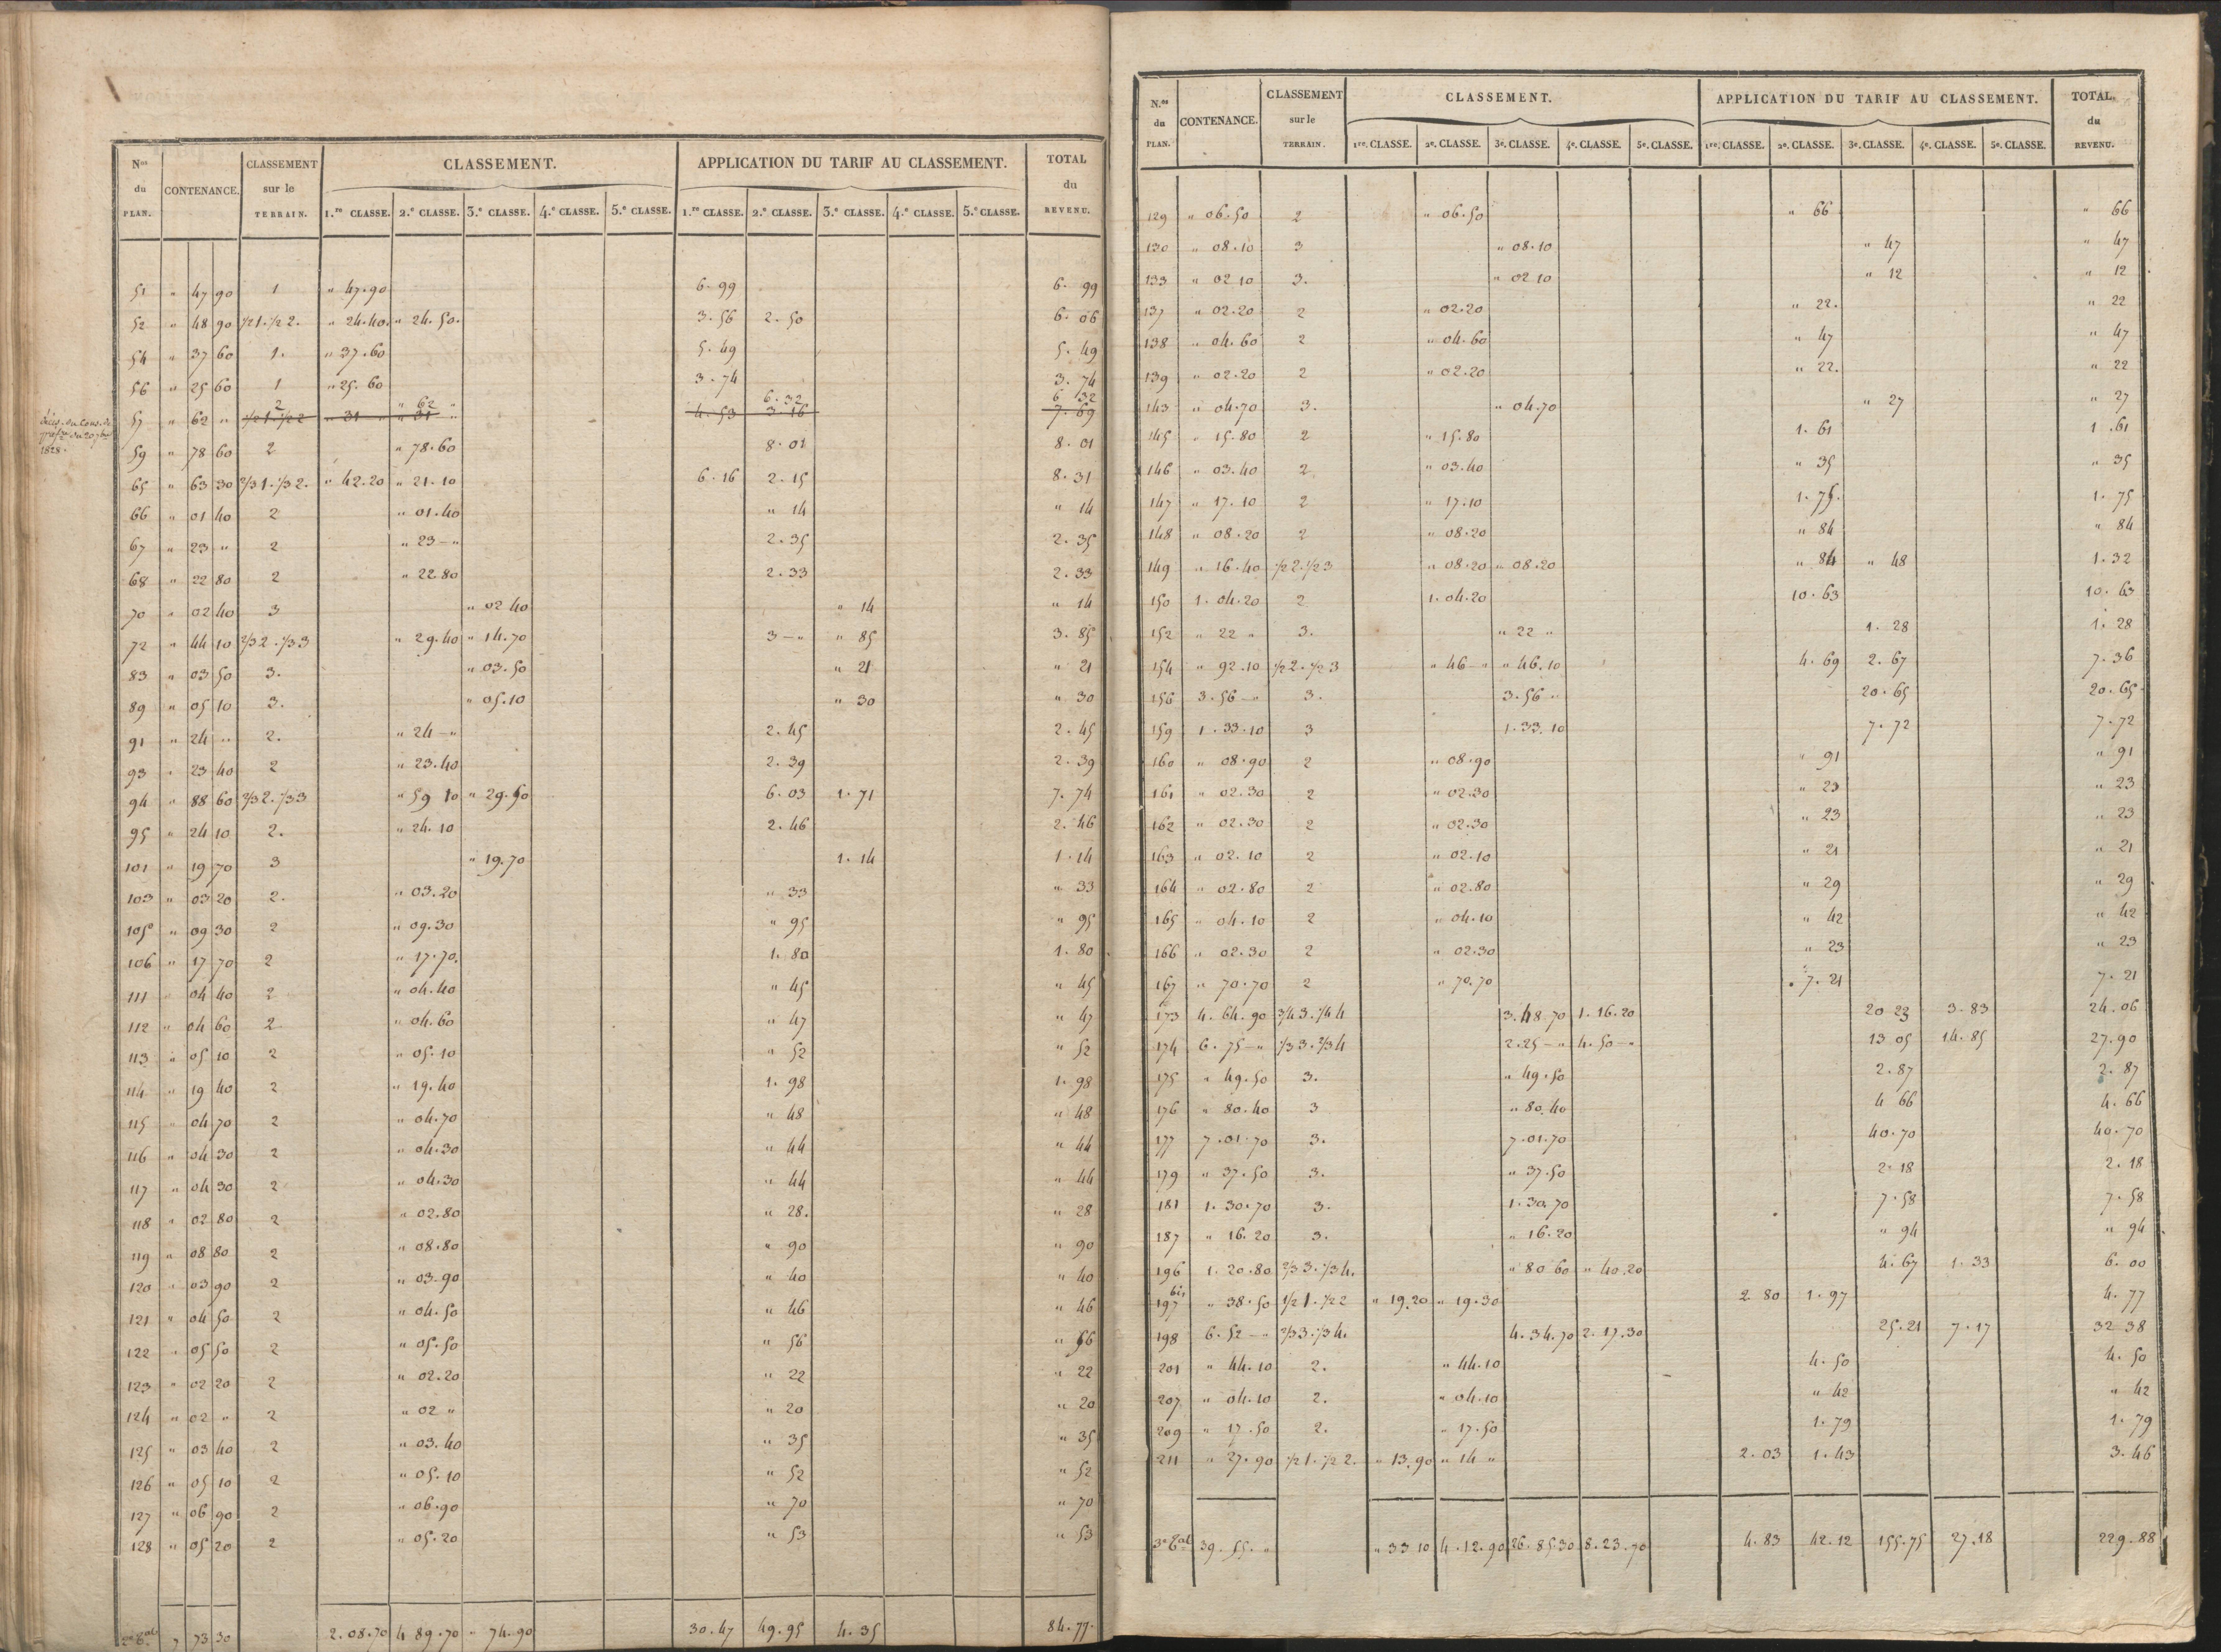 Nos du PLAN. CONTENANCE. CLASSEMENT sur le TERRAIN. CLASSEMENT. APPLICATION DU TARIF AU CLASSEMENT. TOTAL du REVENU.
1.re CLASSE. 2.e CLASSE. 3.e CLASSE. 4.e CLASSE. 5.e CLASSE. 1.re CLASSE. 2.e CLASSE. 3.e CLASSE. 4.e CLASSE. 5.e CLASSE.
51 " 47 90 1 " 47.90 6.99 6.99
52 " 48 90 1/2 1. 1/2 2. " 24.40. " 24.50. 3.56 2.50 6.06
54 " 37 60 1. " 37.60 5.49 5.49
56 " 25 60 1 " 25.60 3.74 3.74
2 " 62 " 6.32 6 32
57 " 62 " 1/2 1. 1/2 2 " 31 " " 31 " 4.53 3.16 7.69
du 20
1828.
59 " 78 60 2 " 78.60 8.01 8.01
65 " 63 30 2/3 1. 1/3 2. " 42.20 " 21.10 6.16 2.15 8.31
66 " 01 40 2 " 01.40 " 14 " 14
67 " 23 " 2 " 23 - " 2.35 2.35
68 " 22 80 2 " 22.80 2.33 2.33
70 " 02 40 3 " 02 40 " 14 " 14
72 " 44 10 2/3 2. 1/3 3 " 29.40 " 14.70 3 - " " 85 3.85
83 " 03 50 3. " 03.50 " 21 " 21
89 " 05 10 3. " 05.10 " 30 " 30
91 " 24 " 2. " 24 - " 2.45 2.45
93 " 23 40 2 " 23.40 2.39 2.39
94 " 88 60 2/3 2. 1/3 3 " 59 10 " 29.50 6.03 1.71 7.74
95 " 24 10 2. " 24.10 2.46 2.46
101 " 19 70 3 " 19.70 1.14 1.14
103 " 03 20 2. " 03.20 " 33 " 33
105 " 09 30 2 " 09.30 " 95 " 95
106 " 17 70 2 " 17.70. 1.80 1.80
111 " 04 40 2 " 04.40 " 45 " 45
112 " 04 60 2 " 04.60 " 47 " 47
113 " 05 10 2 " 05.10 " 52 " 52
114 " 19 40 2 " 19.40 1.98 1.98
115 " 04 70 2 " 04.70 " 48 " 48
116 " 04 30 2 " 04.30 " 44 " 44
117 " 04 30 2 " 04.30 " 44 " 44
118 " 02 80 2 " 02.80 " 28. " 28
119 " 08 80 2 " 08.80 " 90 " 90
120 " 03 90 2 " 03.90 " 40 " 40
121 " 04 50 2 " 04.50 " 46 " 46
122 " 05 50 2 " 05.50 " 56 " 56
123 " 02 20 2 " 02.20 " 22 " 22
124 " 02 " 2 " 02 " " 20 " 20
125 " 03 40 2 " 03.40 " 35 " 35
126 " 05 10 2 " 05.10 " 52 " 52
127 " 06 90 2 " 06.90 " 70 " 70
128 " 05 20 2 " 05.20 " 53 " 53
7 73 30 2.08.70 4 89.70 " 74.90 30.47 49.95 4.35 84.77.
N.os du PLAN. CONTENANCE. CLASSEMENT sur le TERRAIN. CLASSEMENT. APPLICATION DU TARIF AU CLASSEMENT. TOTAL. du REVENU.
1re. CLASSE. 2e. CLASSE. 3e. CLASSE. 4e. CLASSE. 5e. CLASSE. 1re. CLASSE. 2e. CLASSE. 3e. CLASSE. 4e. CLASSE. 5e. CLASSE.
129 " 06.50 2 " 06.50 " 66 " 66
130 " 08.10 3 " 08.10 " 47 " 47
133 " 02 10 3. " 02 10 " 12 " 12
137 " 02.20 2 " 02.20 " 22. " 22
138 " 04.60 2 " 04.60 " 47 " 47
139 " 02.20 2 " 02.20 " 22. " 22
143 " 04.70 3. " 04.70 " 27 " 27
145 " 15.80 2 " 15.80 1.61 1.61
146 " 03.40 2 " 03.40 " 35 " 35
147 " 17.10 2 " 17.10 1.75. 1.75
148 " 08.20 2 " 08.20 " 84 " 84
149 " 16.40 1/2 2. 1/2 3 " 08.20 " 08.20 " 84 " 48 1.32
150 1.04.20 2 1.04.20 10.63 10.63
152 " 22 " 3. " 22 " 1.28 1.28
154 " 92.10 1/2 2. 1/2 3 " 46 - " " 46.10 4.69 2.67 7.36
156 3.56 - " 3. 3.56 " 20.65 20.65
159 1.33.10 3 1.33.10 7.72 7.72
160 " 08.90 2 " 08.90 " 91 " 91
161 " 02.30 2 " 02.30 " 23 " 23
162 " 02.30 2 " 02.30 " 23 " 23
163 " 02.10 2 " 02.10 " 21 " 21
164 " 02.80 2 " 02.80 " 29 " 29
165 " 04.10 2 " 04.10 " 42 " 42
166 " 02.30 2 " 02.30 " 23 " 23
167 " 70.70 2 " 70.70 7.21 7.21
173 4.64.90 3/4 3. 1/4 4 3.48.70 1.16.20 20 23 3.83 24.06
174 6.75 - " 1/3 3. 2/3 4 2.25 - " 4.50 - " 13 05 14.85 27.90
175 " 49.50 3. " 49.50 2.87 2.87
176 " 80.40 3 " 80.40 4 66 4.66
177 7.01.70 3. 7.01.70 40.70 40.70
179 " 37.50 3. " 37.50 2.18 2.18
181 1.30.70 3. 1.30.70 7.58 7.58
187 " 16.20 3. " 16.20 " 94 " 94
196 1.20.80 2/3 3. 1/3 4. " 80 60 " 40.20 4.67 1.33 6.00
197 bis " 38.50 1/2 1. 1/2 2 " 19.20 " 19.30 2 80 1.97 4.77
198 6.52 - " 2/3 3. 1/3 4. 4.34.70 2.17.30 25.21 7.17 32 38
201 " 44.10 2. " 44.10 4.50 4.50
207 " 04.10 2. " 04.10 " 42 " 42
209 " 17.50 2. " 17.50 1.79 1.79
211 " 27.90 1/2 1. 1/2 2. " 13.90 " 14 " 2.03 1.43 3.46
39.55. " " 33 10 4.12.90 26.85.30 8.23.70 4.83 42.12 155.75 27.18 229.88